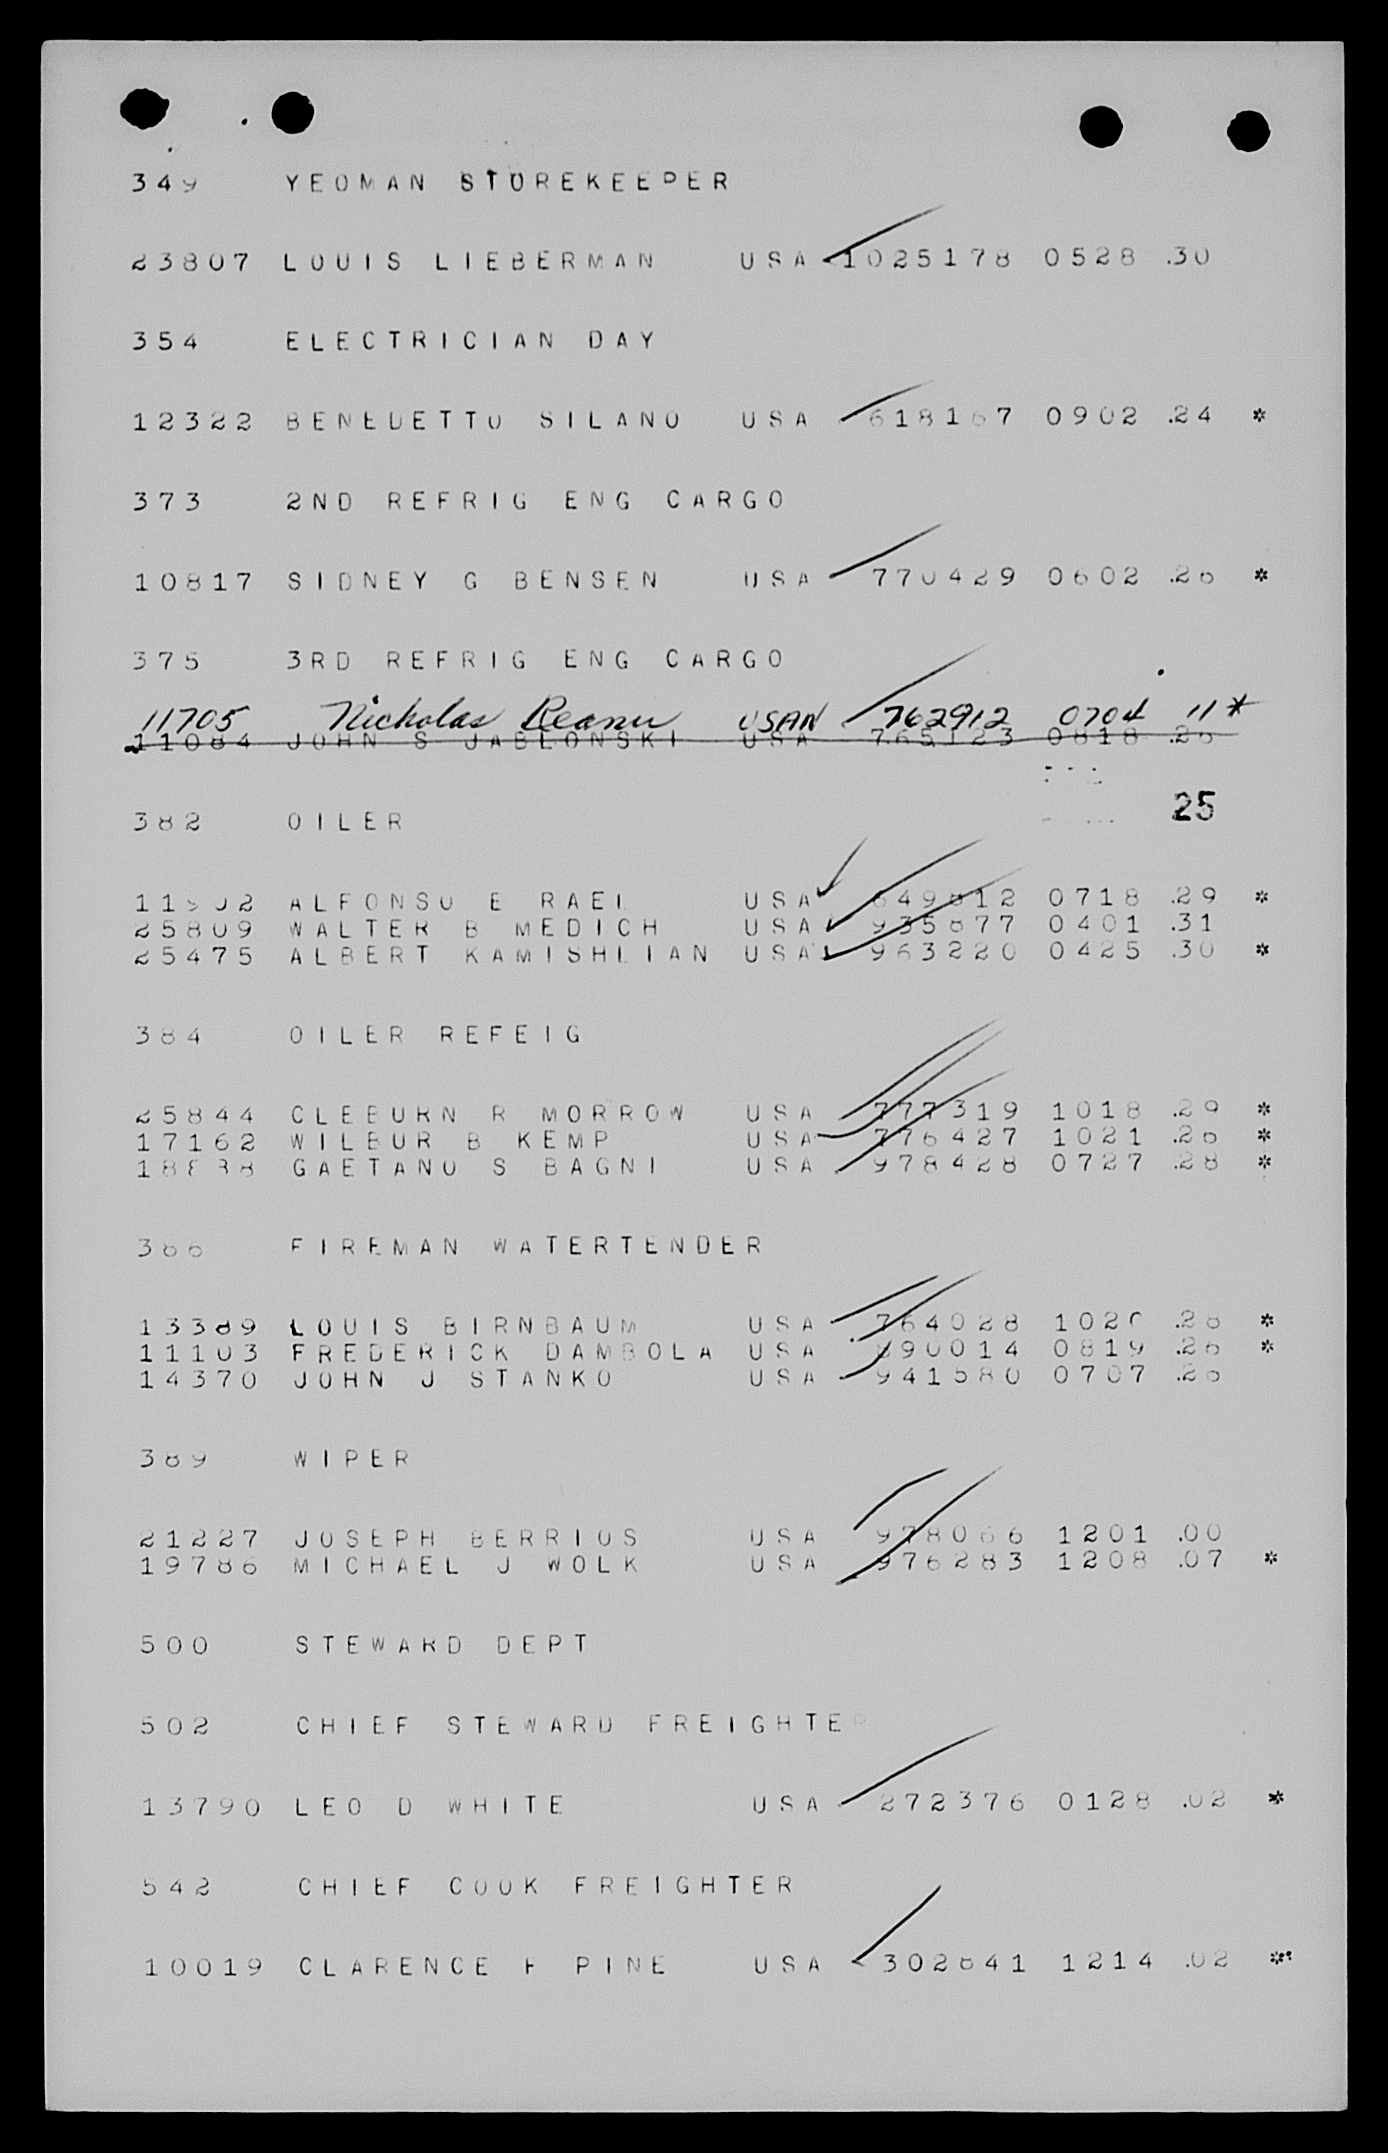 349 YEOMAN STOREKEEPER
23807 LOUIS LIEBERMAN USA 1025178 0528 .30
354 ELECTRICIAN DAY
12322 BENEDETTO SILANO USA 618167 0902 .24 *
373 2ND REFRIG ENG CARGO
10817 SIDNEY G BENSEN USA 770429 0602 .26 *
375 3RD REFRIG ENG CARGO
11705 Nicholas Reanu USAN 762912 0704 11 *
11084 JOHN S JABLONSKI USA 765123 0818 .26
25
382 OILER
ALFONSO E RAEL USA 0718 .29 *
25809 WALTER B MEDICH USA 0401 .31
25475 ALBERT KAMISHLIAN USA 963220 0425 .30 *
384 OILER REFEIG
25844 CLEBURN R MORROW USA 777319 1018 .29 *
17162 WILBUR B KEMP USA 776427 1021 .26 *
GAETANO S BAGNI USA 978428 0727 .28 *
386 FIREMAN WATERTENDER
13389 LOUIS BIRNBAUM USA 764028 .28 *
11103 FREDERICK DAMBOLA USA 0819 .26 *
14370 JOHN J STANKO USA 941580 0707 .26
389 WIPER
21227 JOSEPH BERRIOS USA 978066 1201 .00
19786 MICHAEL J WOLK USA 976283 1208 .07 *
500 STEWARD DEPT
502 CHIEF STEWARD FREIGHTER
13790 LEO D WHITE USA 272376 0128 .02 *
542 CHIEF COOK FREIGHTER
10019 CLARENCE F PINE USA 302641 1214 .02 *